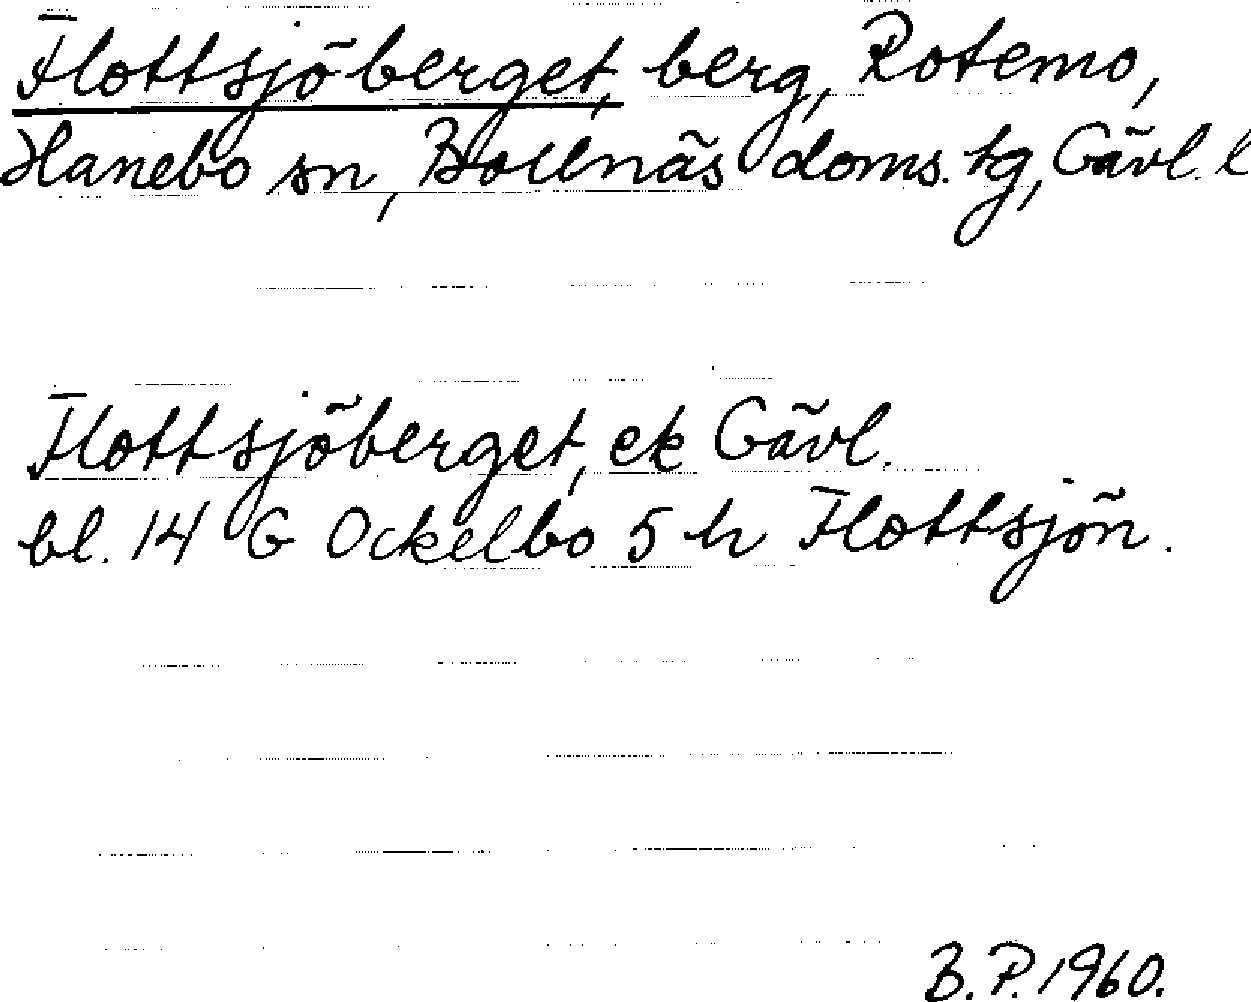 Flottsjöberget, berg, Rotemo,
Hanebo sn, Bollnäs doms. tg, Gävl. l
Flottsjöberget, ek Gävl.
bl. 14 G Ockelbo 5 h Flottsjön.
B.P. 1960.